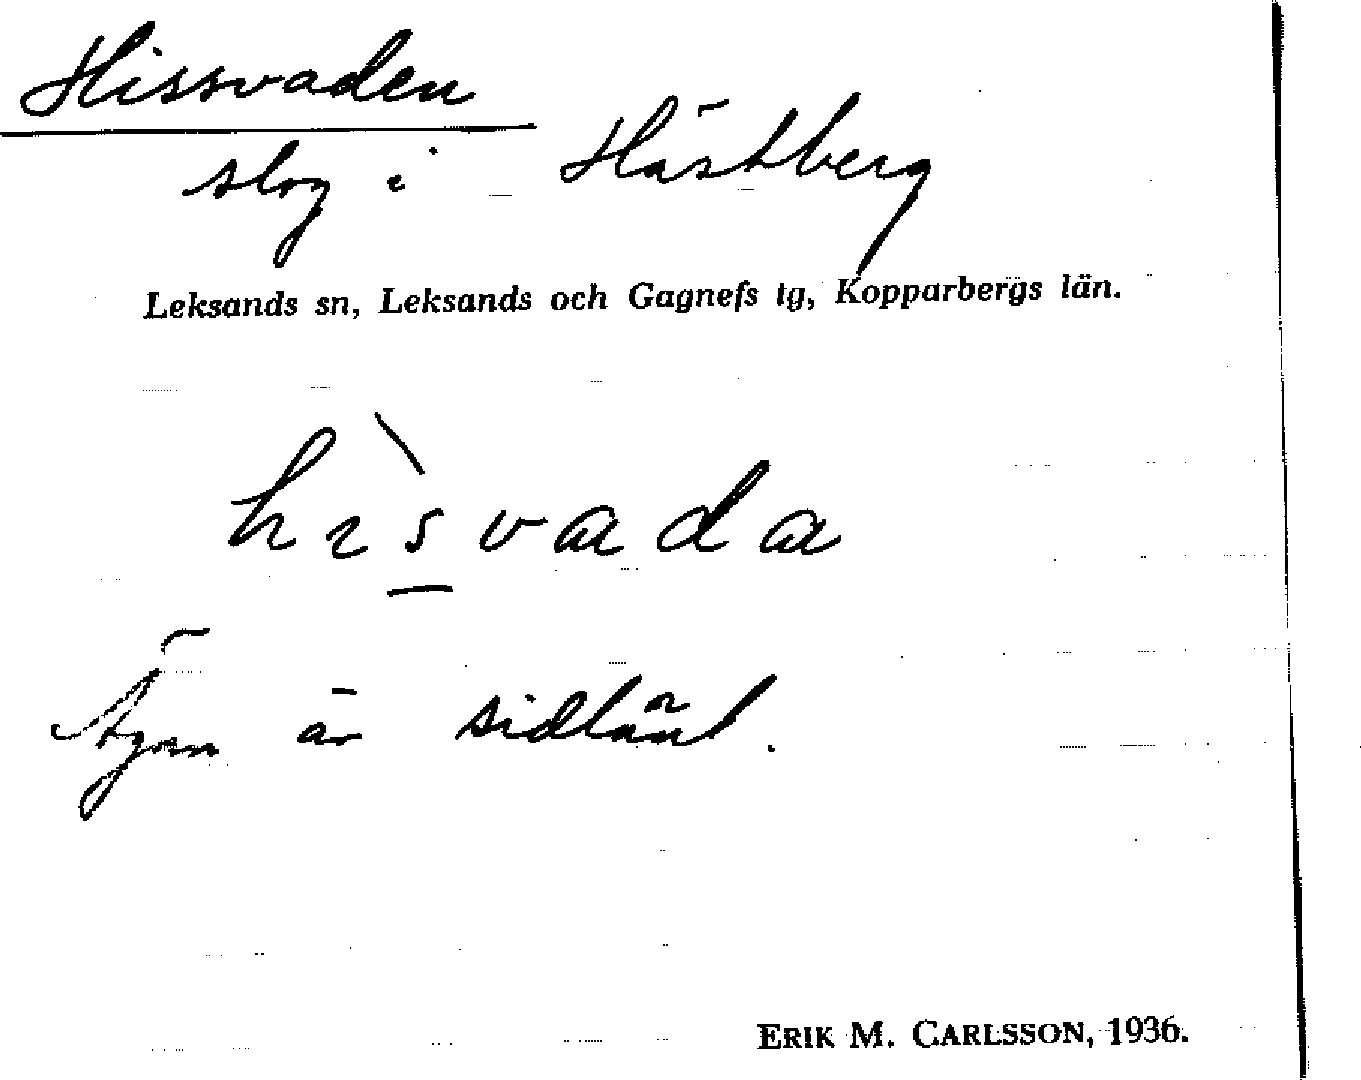 Hissvaden
slog i Hästberg
Leksands sn, Leksands och Gagnefs tg, Kopparbergs län.
hìsvada
Ägan är sidlänt.
ERIK M. CARLSSON, 1936.